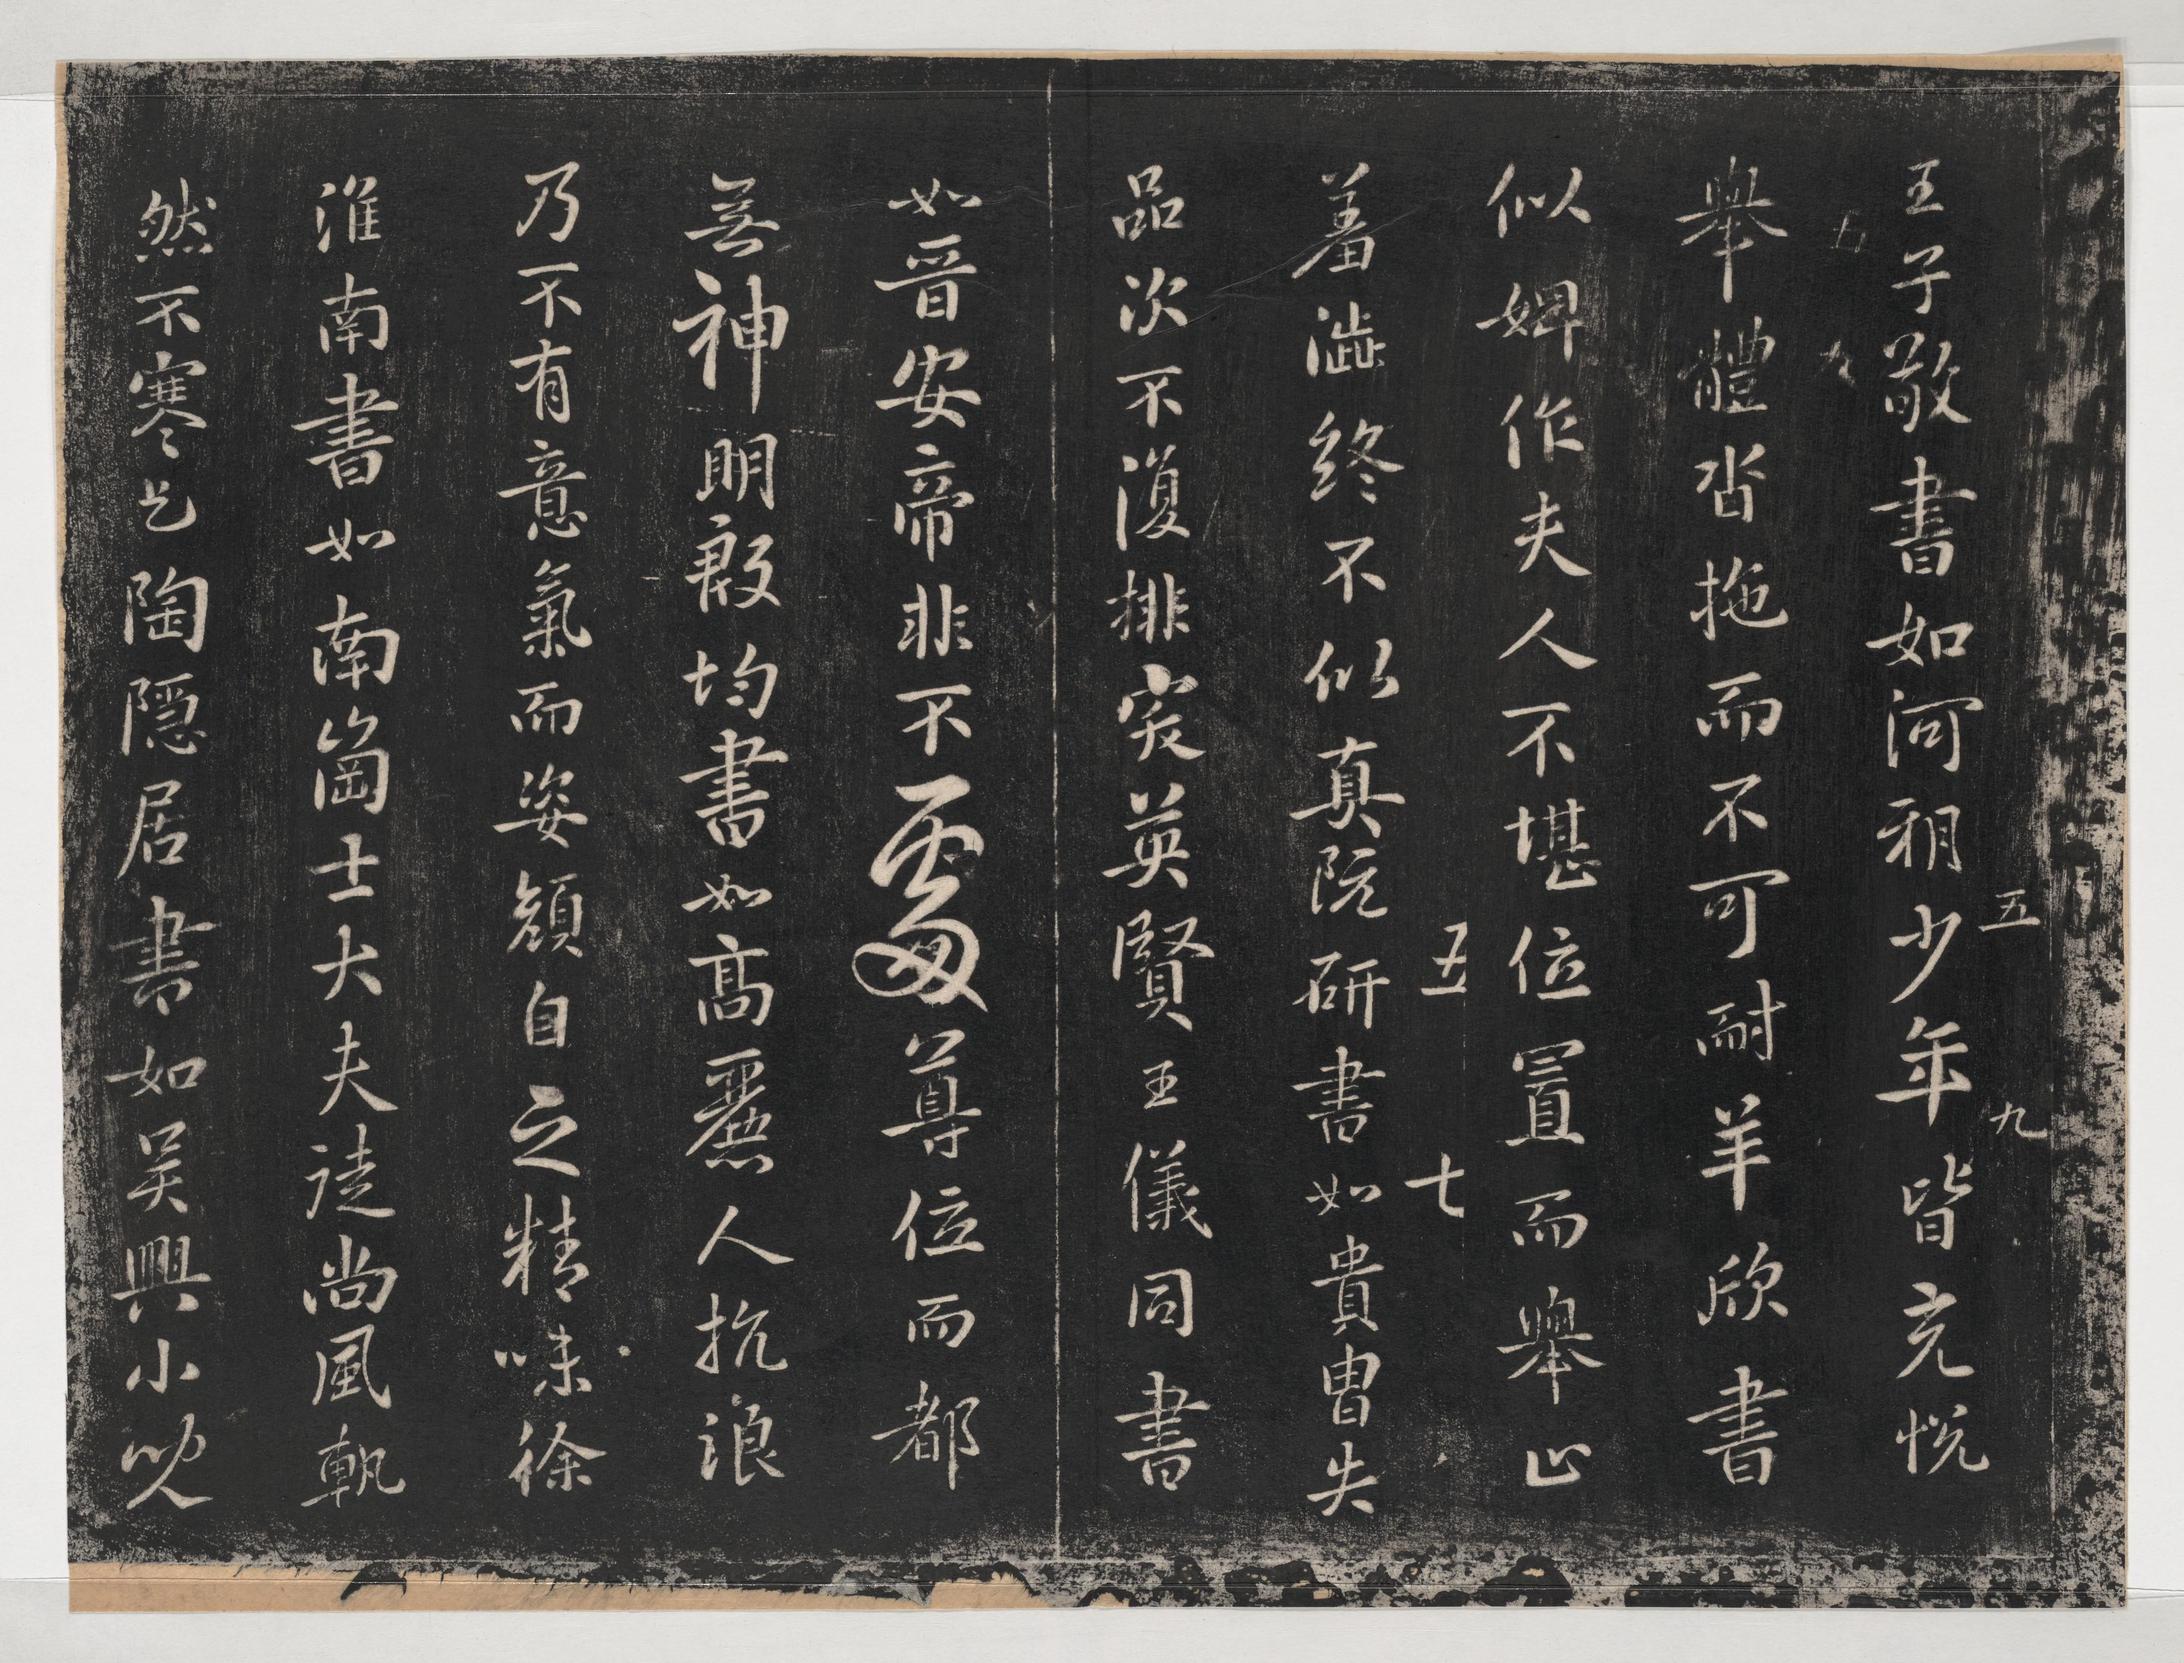 五九
王子敬書如河朔少年皆充悅
舉體沓拖而不可耐羊欣書
似婢作夫人不堪位置而舉止
五七
羞澁終不似真阮研書如貴胄失
品次不復排突英賢王儀同書
如晉安帝非不處尊位而都
無神明殷均書如高麗人抗浪
乃不有意氣而姿顏自乏精味徐
淮南書如南崗士大夫徒尚風軌
然不寒乞陶隱居書如吳興小兒